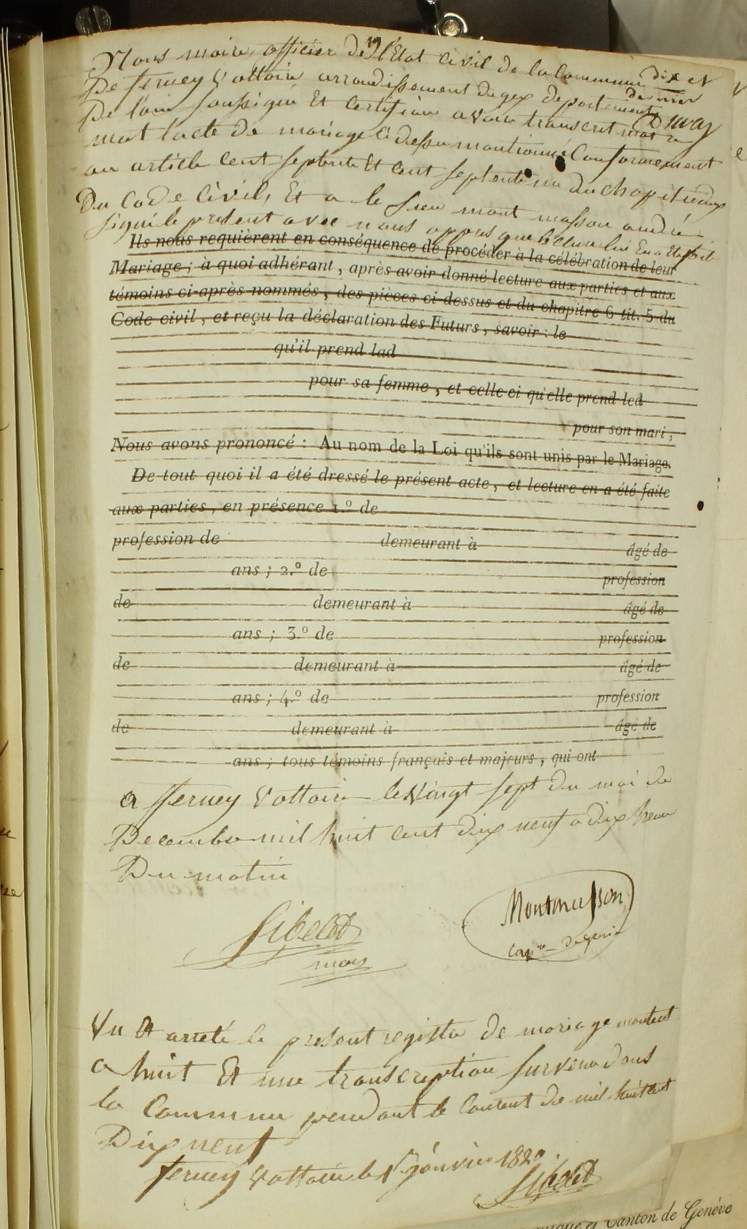 Nous maire, officier de l'Etat civil de la Commune
De ferney Voltaire arrondissement de gex departement
De l'ain soussigné Et Certifions avoir transcrit mot a
mot l'acte de mariage Ci dessus mentionné Conformement
au article cent septente Et cent septente un du chapitre deux
Du Code Civil, Et a le sieur mont masson andré
signé le present avec nous apres que lecture lui En a Eté fait
Ils nous requièrent en conséquence de procéder à la célébration de leur
Mariage ; à quoi adhérant, après avoir donné lecture aux parties et aux
témoins ci-après nommés, des pièces ci-dessus et du chapitre 6 tit. 5 du
Code civil, et reçu la déclaration des Futurs, savoir : le
qu'il prend lad
pour sa femme, et celle ci qu'elle prend led
pour son mari ;
Nous avons prononcé : Au nom de la Loi qu'ils sont unis par le Mariage.
De tout quoi il a été dressé le présent acte, et lecture en a été faite
aux parties, en présence 1.º de
profession de demeurant à âgé de
ans ; 2.º de profession
de demeurant à âgé de
ans ; 3.º de profession
de demeurant à âgé de
ans ; 4.º de profession
de demeurant à âgé de
ans ; tous témoins français et majeurs, qui ont
a ferney Voltaire le Vingt sept du moi de
Decembre mil huit cent dix neuf a dix heure
Du matin
Montmasson
Vu Et arreté le present registre de mariage montant
a huit Et une transcription survenu dans
la Commune pendant le Courant de mil huit cent
Dix neuf
ferney Voltaire le 1er janvier 1820
Canton de Genève